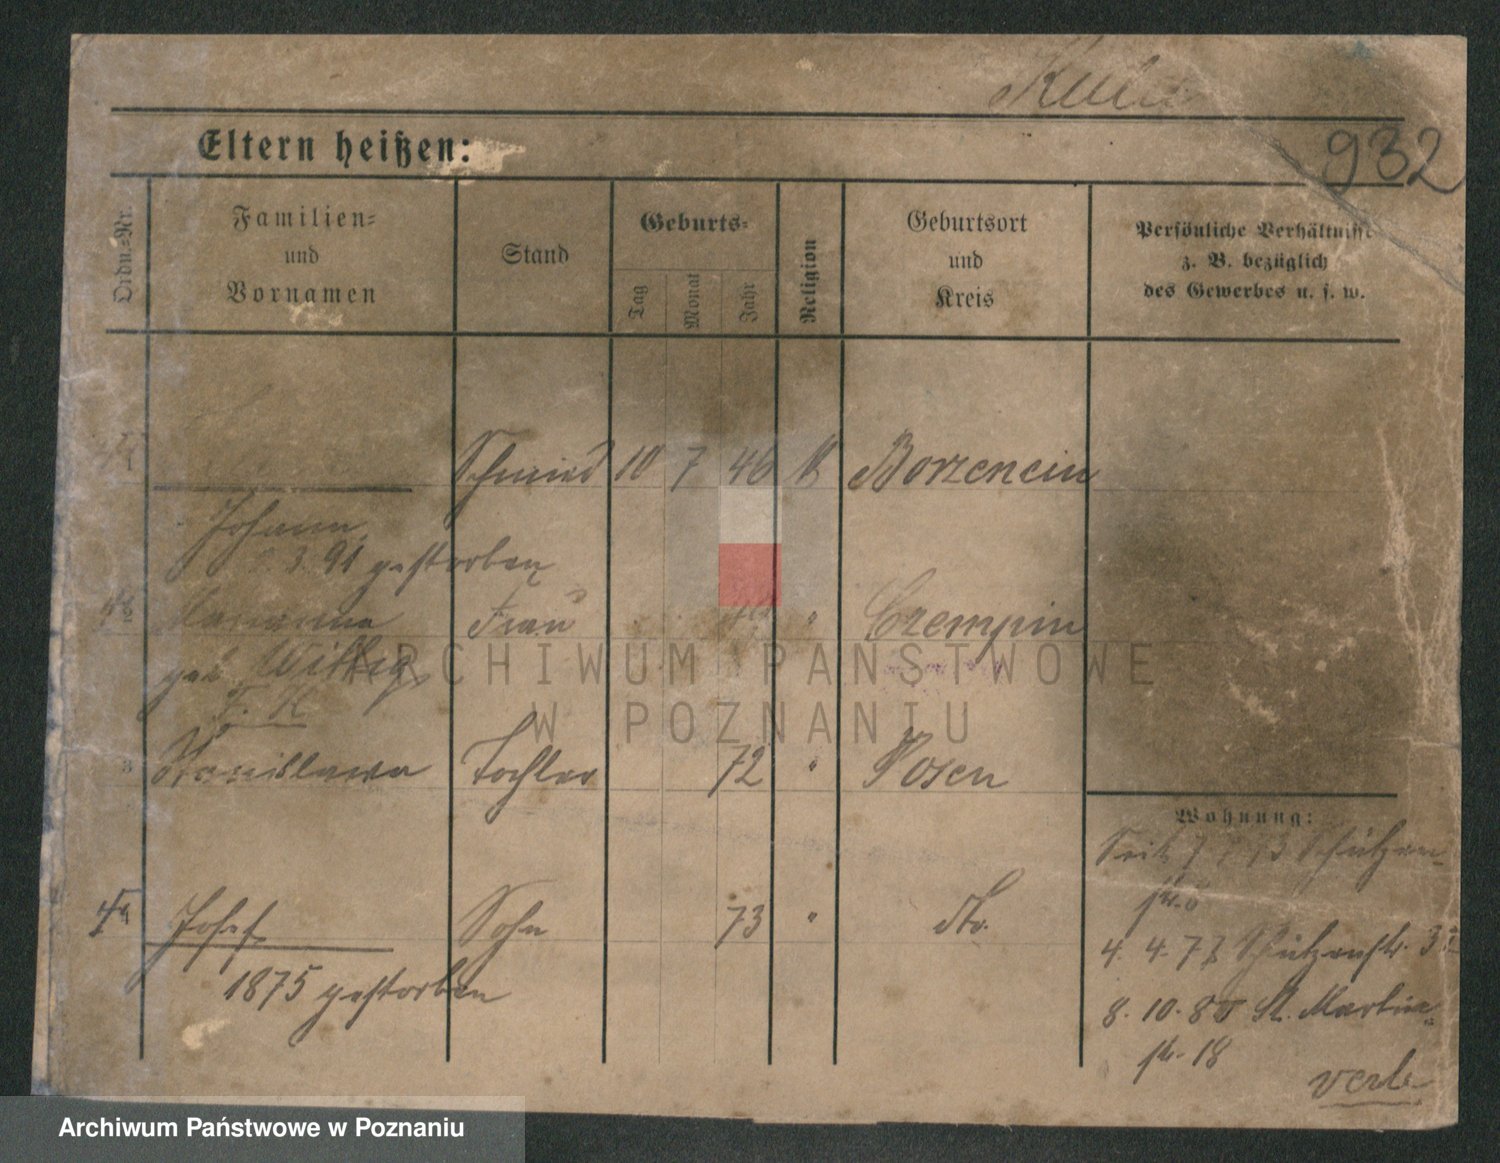 932
Eltern heißen:
Ordn.=Nr.
Familien=
und
Vornamen
Stand
Geburts=
Tag
Monat
Jahr
Religion
Geburtsort
und
Kreis
Persönliche Verhältnisse
z. B. bezüglich
des Gewerbes u. s. w.
1 Schmied 10 7 46 K Borzencin
Johann
3 91 gestorben
Marianna Frau " Czempin
geb Wittig
3 Stanislawa Tochter 72 " Posen
Wohnung:
Seit 7 73 Schützen
str. 6
4 Josef Sohn 73 " do.
1875 gestorben
4. 4. 77 Schützenstr. 3
8. 10. 80 St. Martin
str. 18
verte
ARCHIWUM PAŃSTWOWE
W POZNANIU
Archiwum Państwowe w Poznaniu